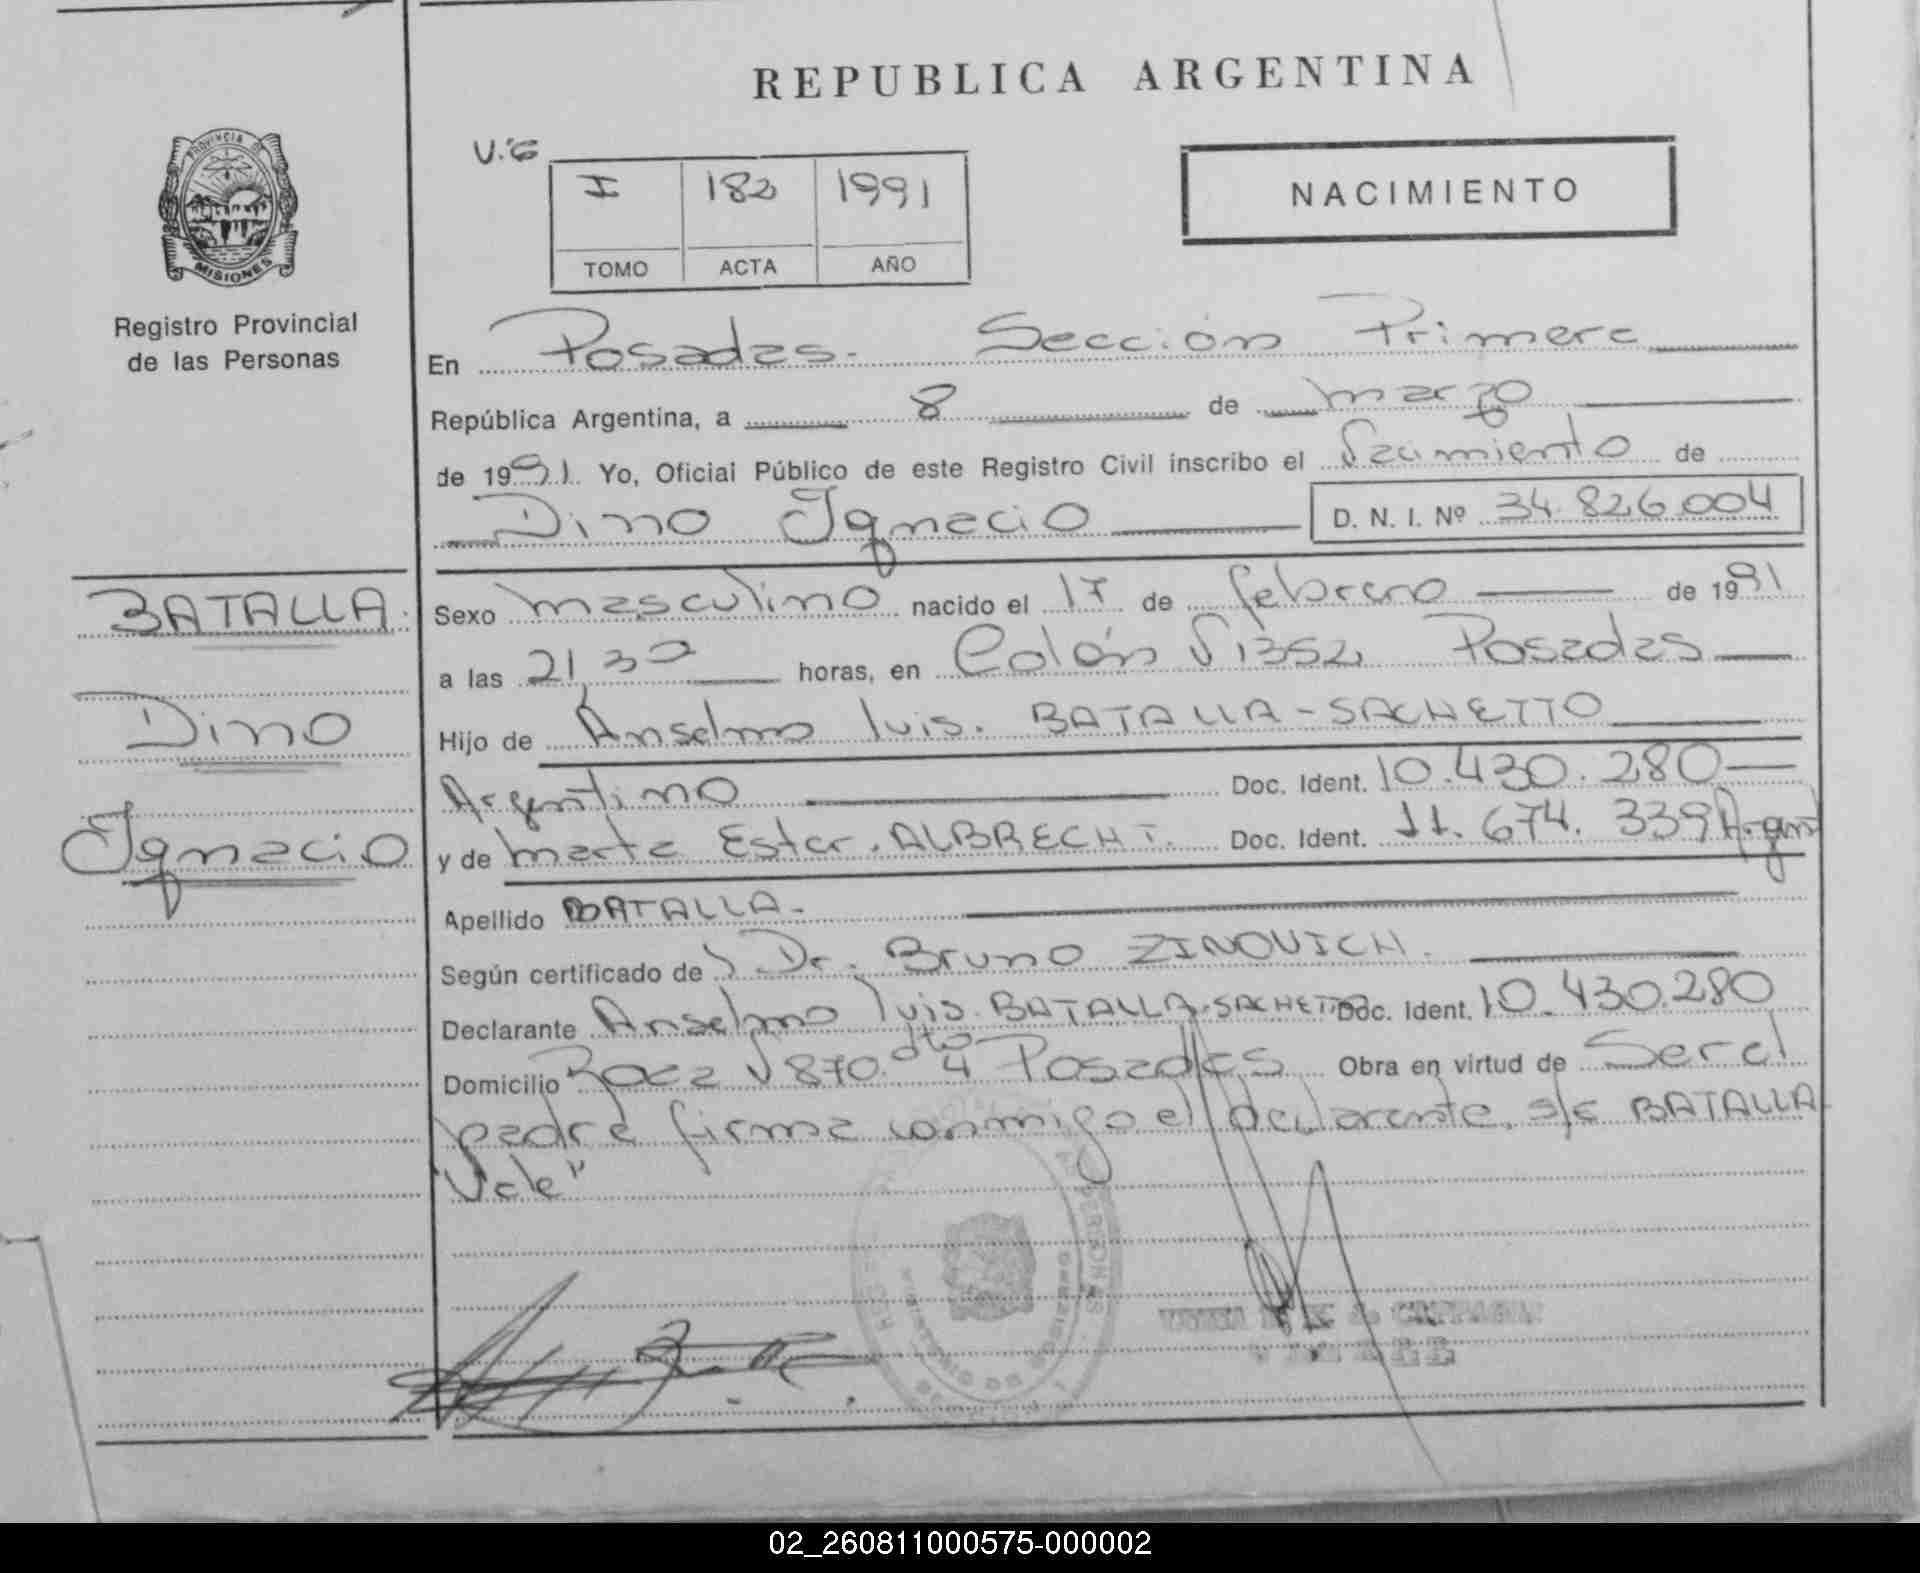 REPUBLICA ARGENTINA
PROVINCIA DE
MISIONES
Registro Provincial
de las Personas
V.G
I 182 1991
TOMO ACTA AÑO
NACIMIENTO
En Posadas. Sección Primera
República Argentina, a 8 de marzo
de 1991 Yo, Oficial Público de este Registro Civil inscribo el Nacimiento de
Dino Ignacio D. N. I. Nº 34.826.004
BATALLA.
Dino
Ignacio
Sexo masculino nacido el 17 de febrero de 1991
a las 21,30 horas, en Colón N 1352, Posadas
Hijo de Anselmo luis. BATALLA-SACHETTO
Argentino Doc. Ident. 10.430.280
y de marta Ester. ALBRECHT. Doc. Ident. 11.674.339 Argent
Apellido BATALLA.
Según certificado de Dr. Bruno ZINOVICH.
Declarante Anselmo luis. BATALLA-SACHETTO Doc. Ident. 10.430.280
Domicilio N 870. dto 4 Posadas Obra en virtud de Ser el
padre firma conmigo el declarante, s/r BATALLA
"Vale"
02_260811000575-000002